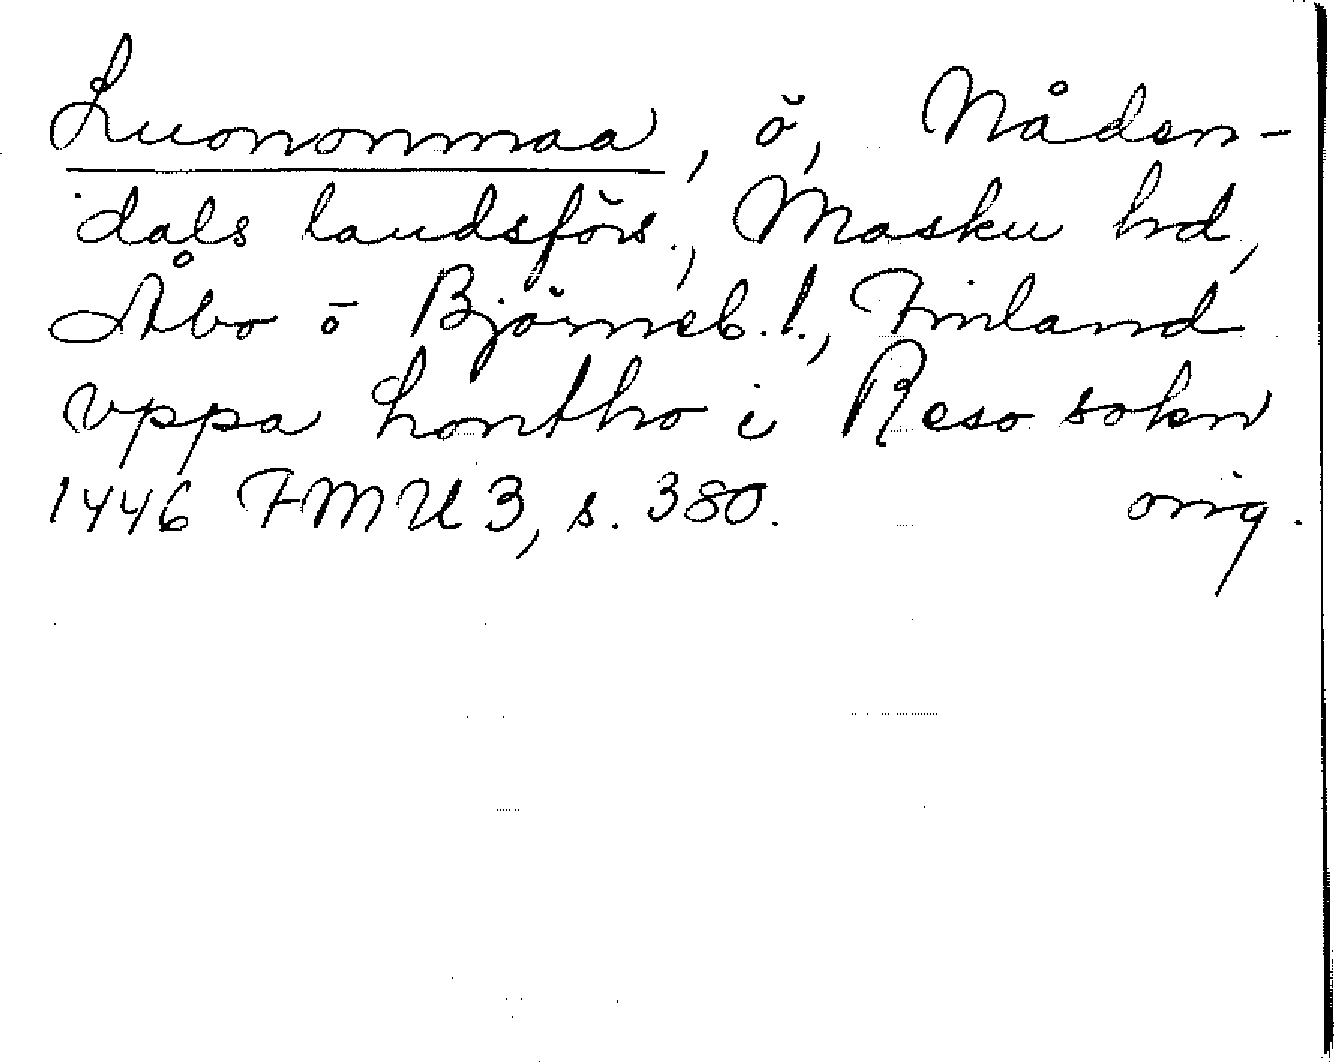 Luononmaa, ö, Nåden-
dals landsförs., Masku hd,
Åbo o Björneb. l., Finland
vppa Lontho i Reso sokn
1446 FMU 3, s. 380. orig.